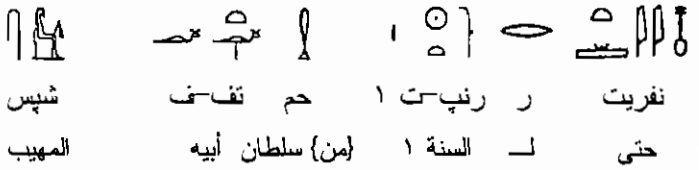 نفريت ر رنپ-ت ١ حم تف-ف شپس
حتى لـ السنة ١ {من} سلطان أبيه المهيب